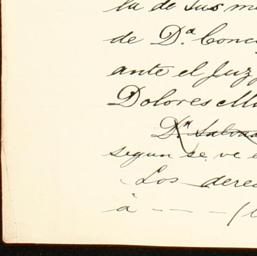 la de sus m
de D.ª Conc
ante el Juz
Dolores Mu
D.n Salva
segun se ve e
Los dere
à - - - - (